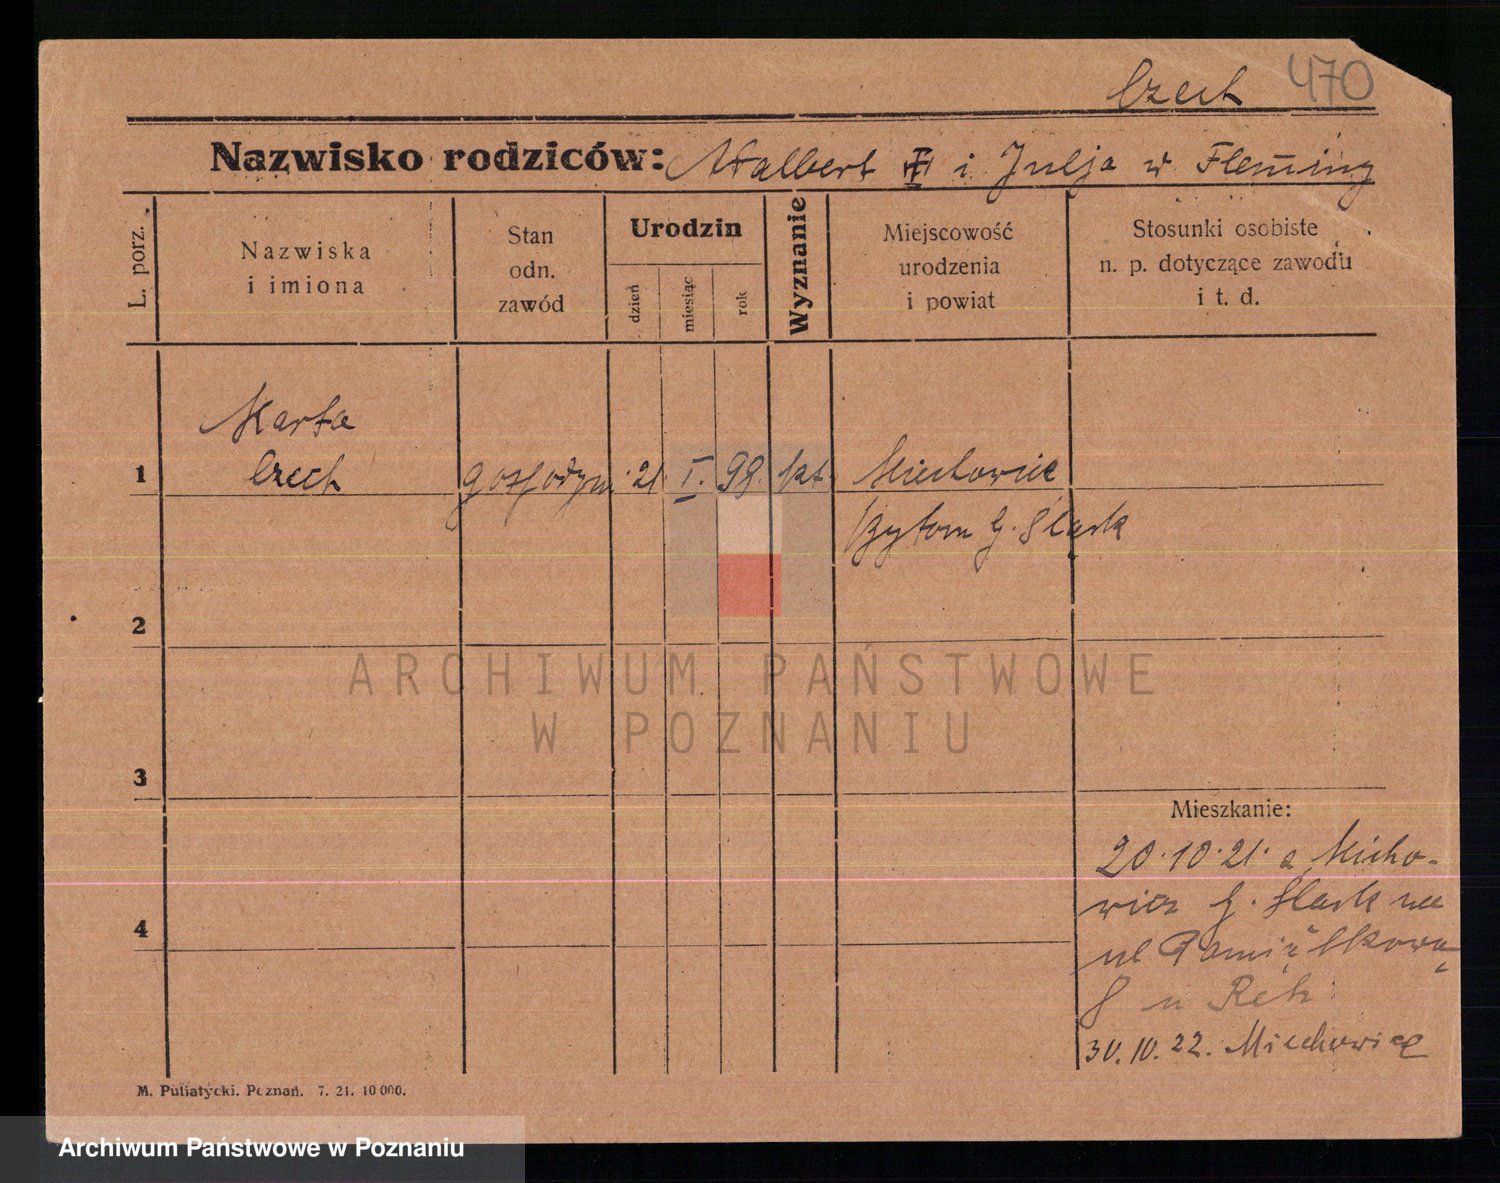 Czech 470
Nazwisko rodziców: Adalbert i Julja w Fleming
L. porz.
Nazwiska
i imiona
Stan
odn.
zawód
Urodzin
dzień
miesiąc
rok
Wyznanie
Miejscowość
urodzenia
i powiat
Stosunki osobiste
n. p. dotyczące zawodu
i t. d.
Marta
1 Czech gospodyni 21. I. 99. kat. Miechowice
Bytom G. Sląsk
2
ARCHIWUM PAŃSTWOWE
W POZNANIU
3
Mieszkanie:
20.10.21. a Micho-
wice G. Sląsk na
4
ul Pamiątkową
8 u Reh
30.10.22. Miechowice
M. Putiatycki. Poznań. 7. 21. 10 000.
Archiwum Państwowe w Poznaniu